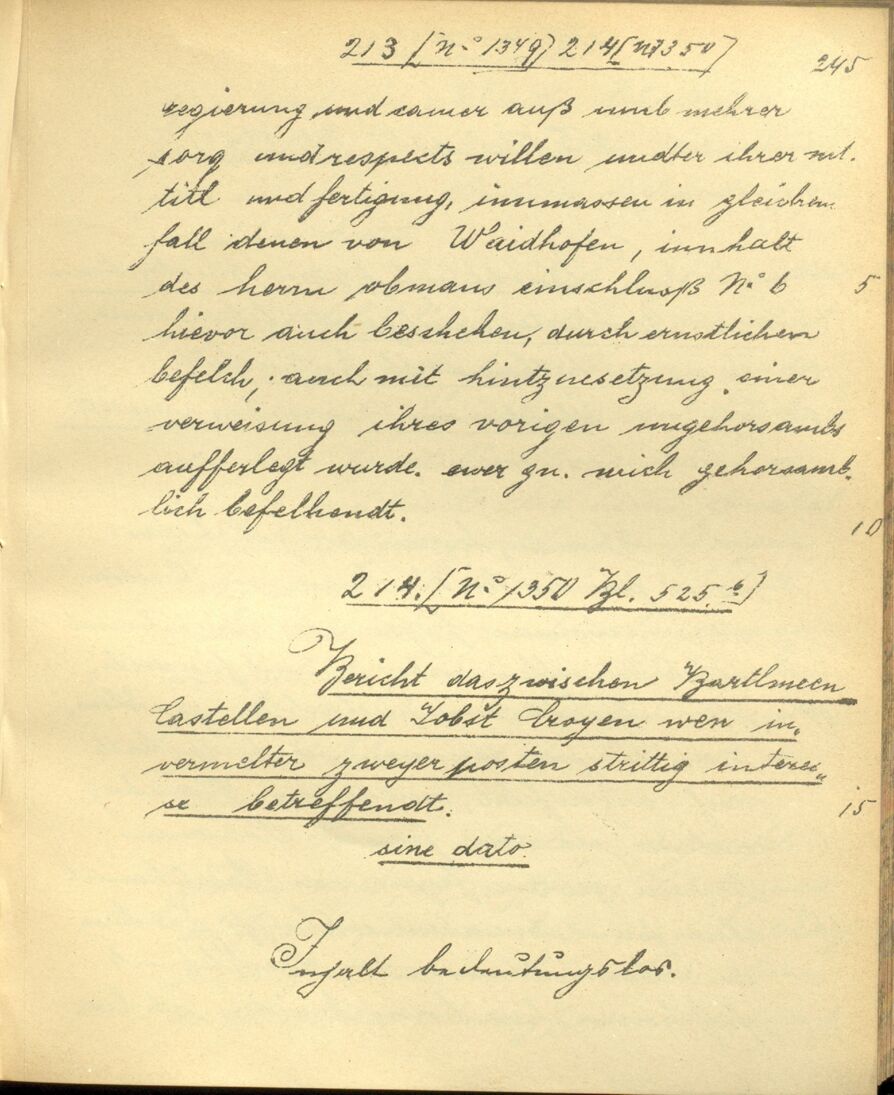 213 [No 1349] 214 [No 1350]
245
regierung und camer auß umb mehrer
sorg und respects willen undter ihrer
titl und fertigung, inmassen in gleichem
fall denen von Waidhofen, innhalt
des herrn obmans einschluß No 6
5
hievor auch beschehen, durch ernstlichen
befelch, auch mit hintzuesetzung einer
verweisung ihres vorigen ungehorsambs
aufferlegt wurde. ewer gn. mich gehorsamb-
lich befelhendt.
10
214. [No 1350 Bl. 525 b]
Bericht das zwischen Bartlmeen
Castellen und Jobst Croyen wen in
vermelter zweyer posten strittig interes-
se betreffendt.
15
sine dato.
Inhalt bedeutungslos.